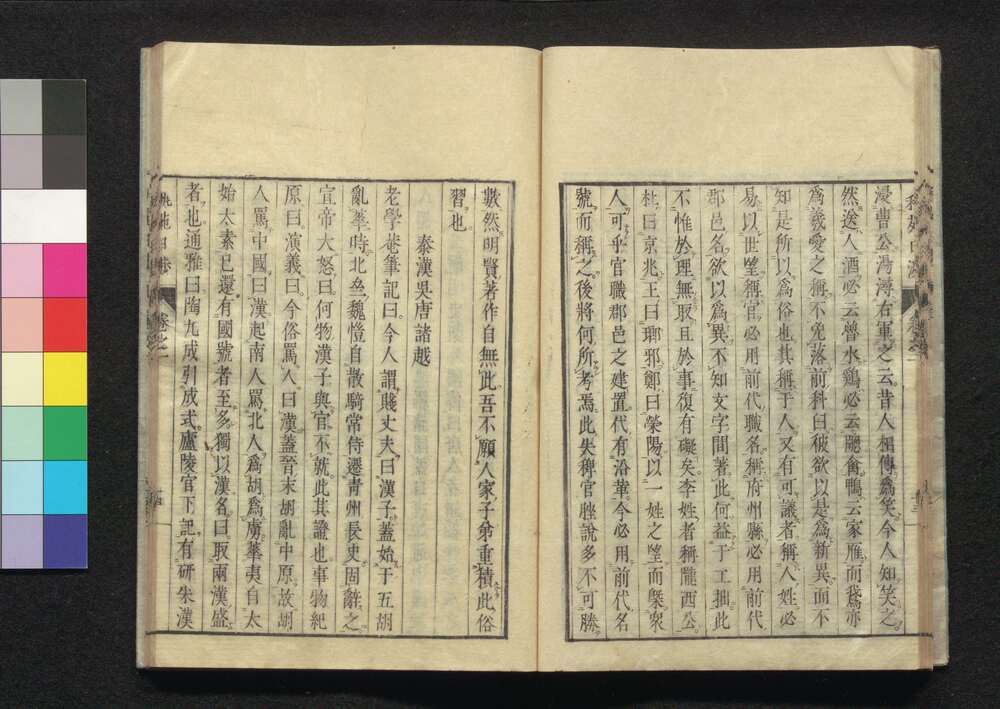 浸曹公湯燖右軍之云昔人相傳爲笑今人知笑之
然送人酒必云曾水鷄必云翰禽鴨云家鴈而鵞亦
爲羲愛之稱不免落前科臼彼欲以是爲新異而不
知是所以爲俗也其稱于人又有可議者稱人姓必
易以世望稱官必用前代職名稱府州縣必用前代
郡邑名欲以爲異不知文字間著此何益于工拙此
不惟於理無取且於事復有礙矣李姓者稱隴西公
杜曰京兆王曰瑯邪鄭曰滎陽以一姓之望而槩衆
人可乎官職郡邑之建置代有沿革今必用前代名
號而稱之後將何所考焉此失稗官脞說多不可勝
數然明賢著作自無此吾不願人家子弟重積此俗
習也
秦漢吳唐諸越
老學菴筆記曰今人謂賤丈夫曰漢子蓋始于五胡
亂華時北齊魏愷自散騎常侍遷青州長史固辭之
宣帝大怒曰何物漢子與官不就此其證也事物紀
原曰演義曰今俗罵人曰漢蓋晉末胡亂中原故胡
人罵中國曰漢起南人罵北人爲胡爲虜華夷自太
始太素已還有國號者至多獨以漢名曰取兩漢盛
者也通雅曰陶九成引成式廬陵官下記有研朱漢
卷之一